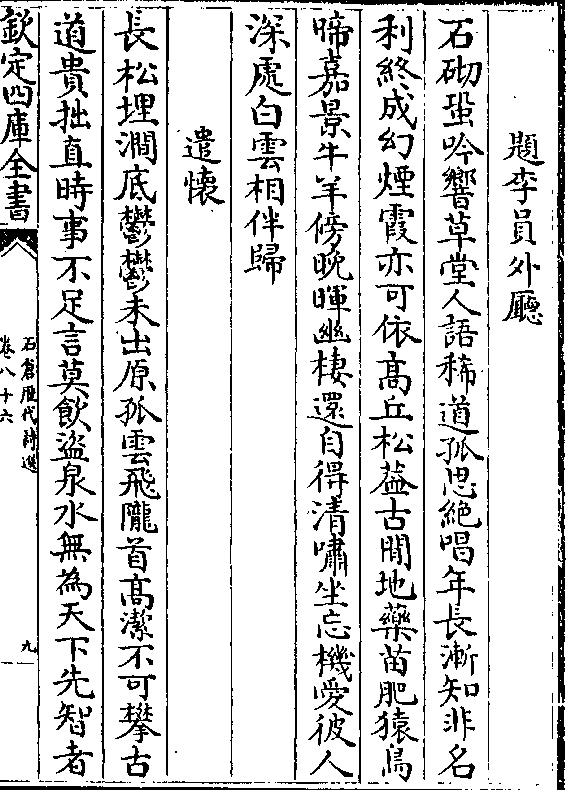 題李員外廳
石砌蛩吟響草堂人語稀道孤思絶唱年長漸知非名
利終成幻煙霞亦可依高丘松葢古閒地藥苗肥猿鳥
啼嘉景牛羊傍晚暉幽棲還自得清嘯坐忘機愛彼人
深處白雲相伴歸
遣懷
長松埋澗底鬱鬱未出原孤雲飛隴首高潔不可攀古
道貴拙直時事不足言莫飲盜泉水無為天下先智者
欽定四庫全書
石倉歴代詩選
卷八十六
九